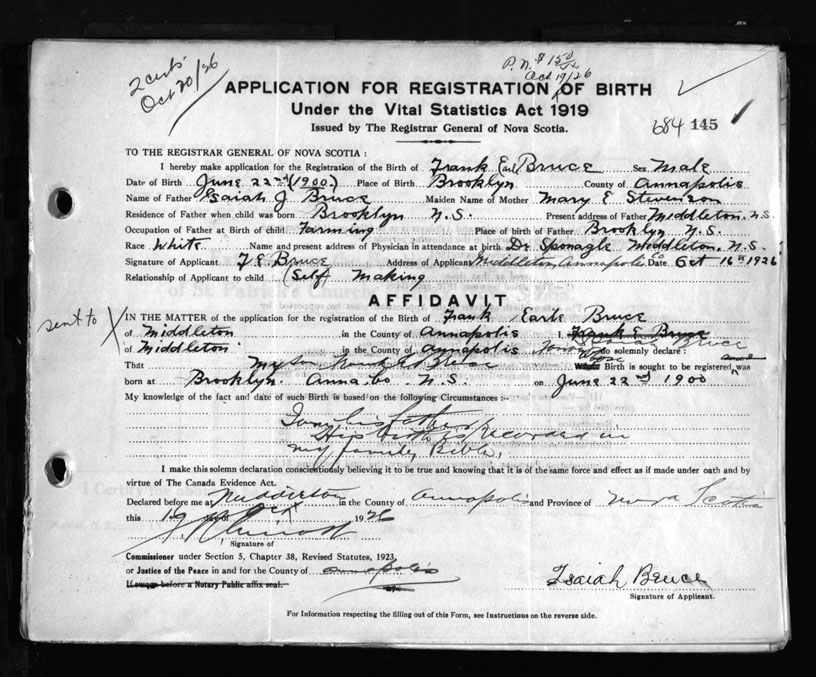 2 certs
Oct 20/26
P.N. $1.50
Oct 19/26
APPLICATION FOR REGISTRATION OF BIRTH
Under the Vital Statistics Act 1919
Issued by The Registrar General of Nova Scotia.
684 145
TO THE REGISTRAR GENERAL OF NOVA SCOTIA:
I hereby make application for the Registration of the Birth of Frank Earl Bruce Sex Male
Date of Birth June 22nd (1900) Place of Birth Brooklyn County of Annapolis
Name of Father Isaiah J. Bruce Maiden Name of Mother Mary E Stevenson
Residence of Father when child was born Brooklyn N.S. Present address of Father Middleton, N.S.
Occupation of Father at Birth of child Farming Place of birth of Father Brooklyn N.S.
Race White Name and present address of Physician in attendance at birth Dr Sponagle Middleton, N.S.
Signature of Applicant F. E. Bruce Address of Applicant Middleton, Annapolis Co Date Oct 16th 1926
Relationship of Applicant to child (Self) Making
AFFIDAVIT
sent to X
IN THE MATTER of the application for the registration of the Birth of Frank Earle Bruce
of Middleton in the County of Annapolis I, Frank E. Bruce
Isaiah Bruce
of Middleton in the County of Annapolis do solemnly declare:
That my son Frank E Bruce Whose Birth is sought to be registered, was
born at Brooklyn. Anna. Co. N.S. on June 22nd 1900
My knowledge of the fact and date of such Birth is based on the following Circumstances:-
I am his father
His birth is recorded in
my family Bible.
I make this solemn declaration conscientiously believing it to be true and knowing that it is of the same force and effect as if made under oath and by
virtue of The Canada Evidence Act.
Declared before me at Middleton in the County of Annapolis and Province of Nova Scotia
this 19 day of Oct 1926
Signature of
Commissioner under Section 5, Chapter 38, Revised Statutes, 1923,
or Justice of the Peace in and for the County of Annapolis
If sworn before a Notary Public affix seal.
Isaiah Bruce
Signature of Applicant.
For Information respecting the filling out of this Form, see Instructions on the reverse side.